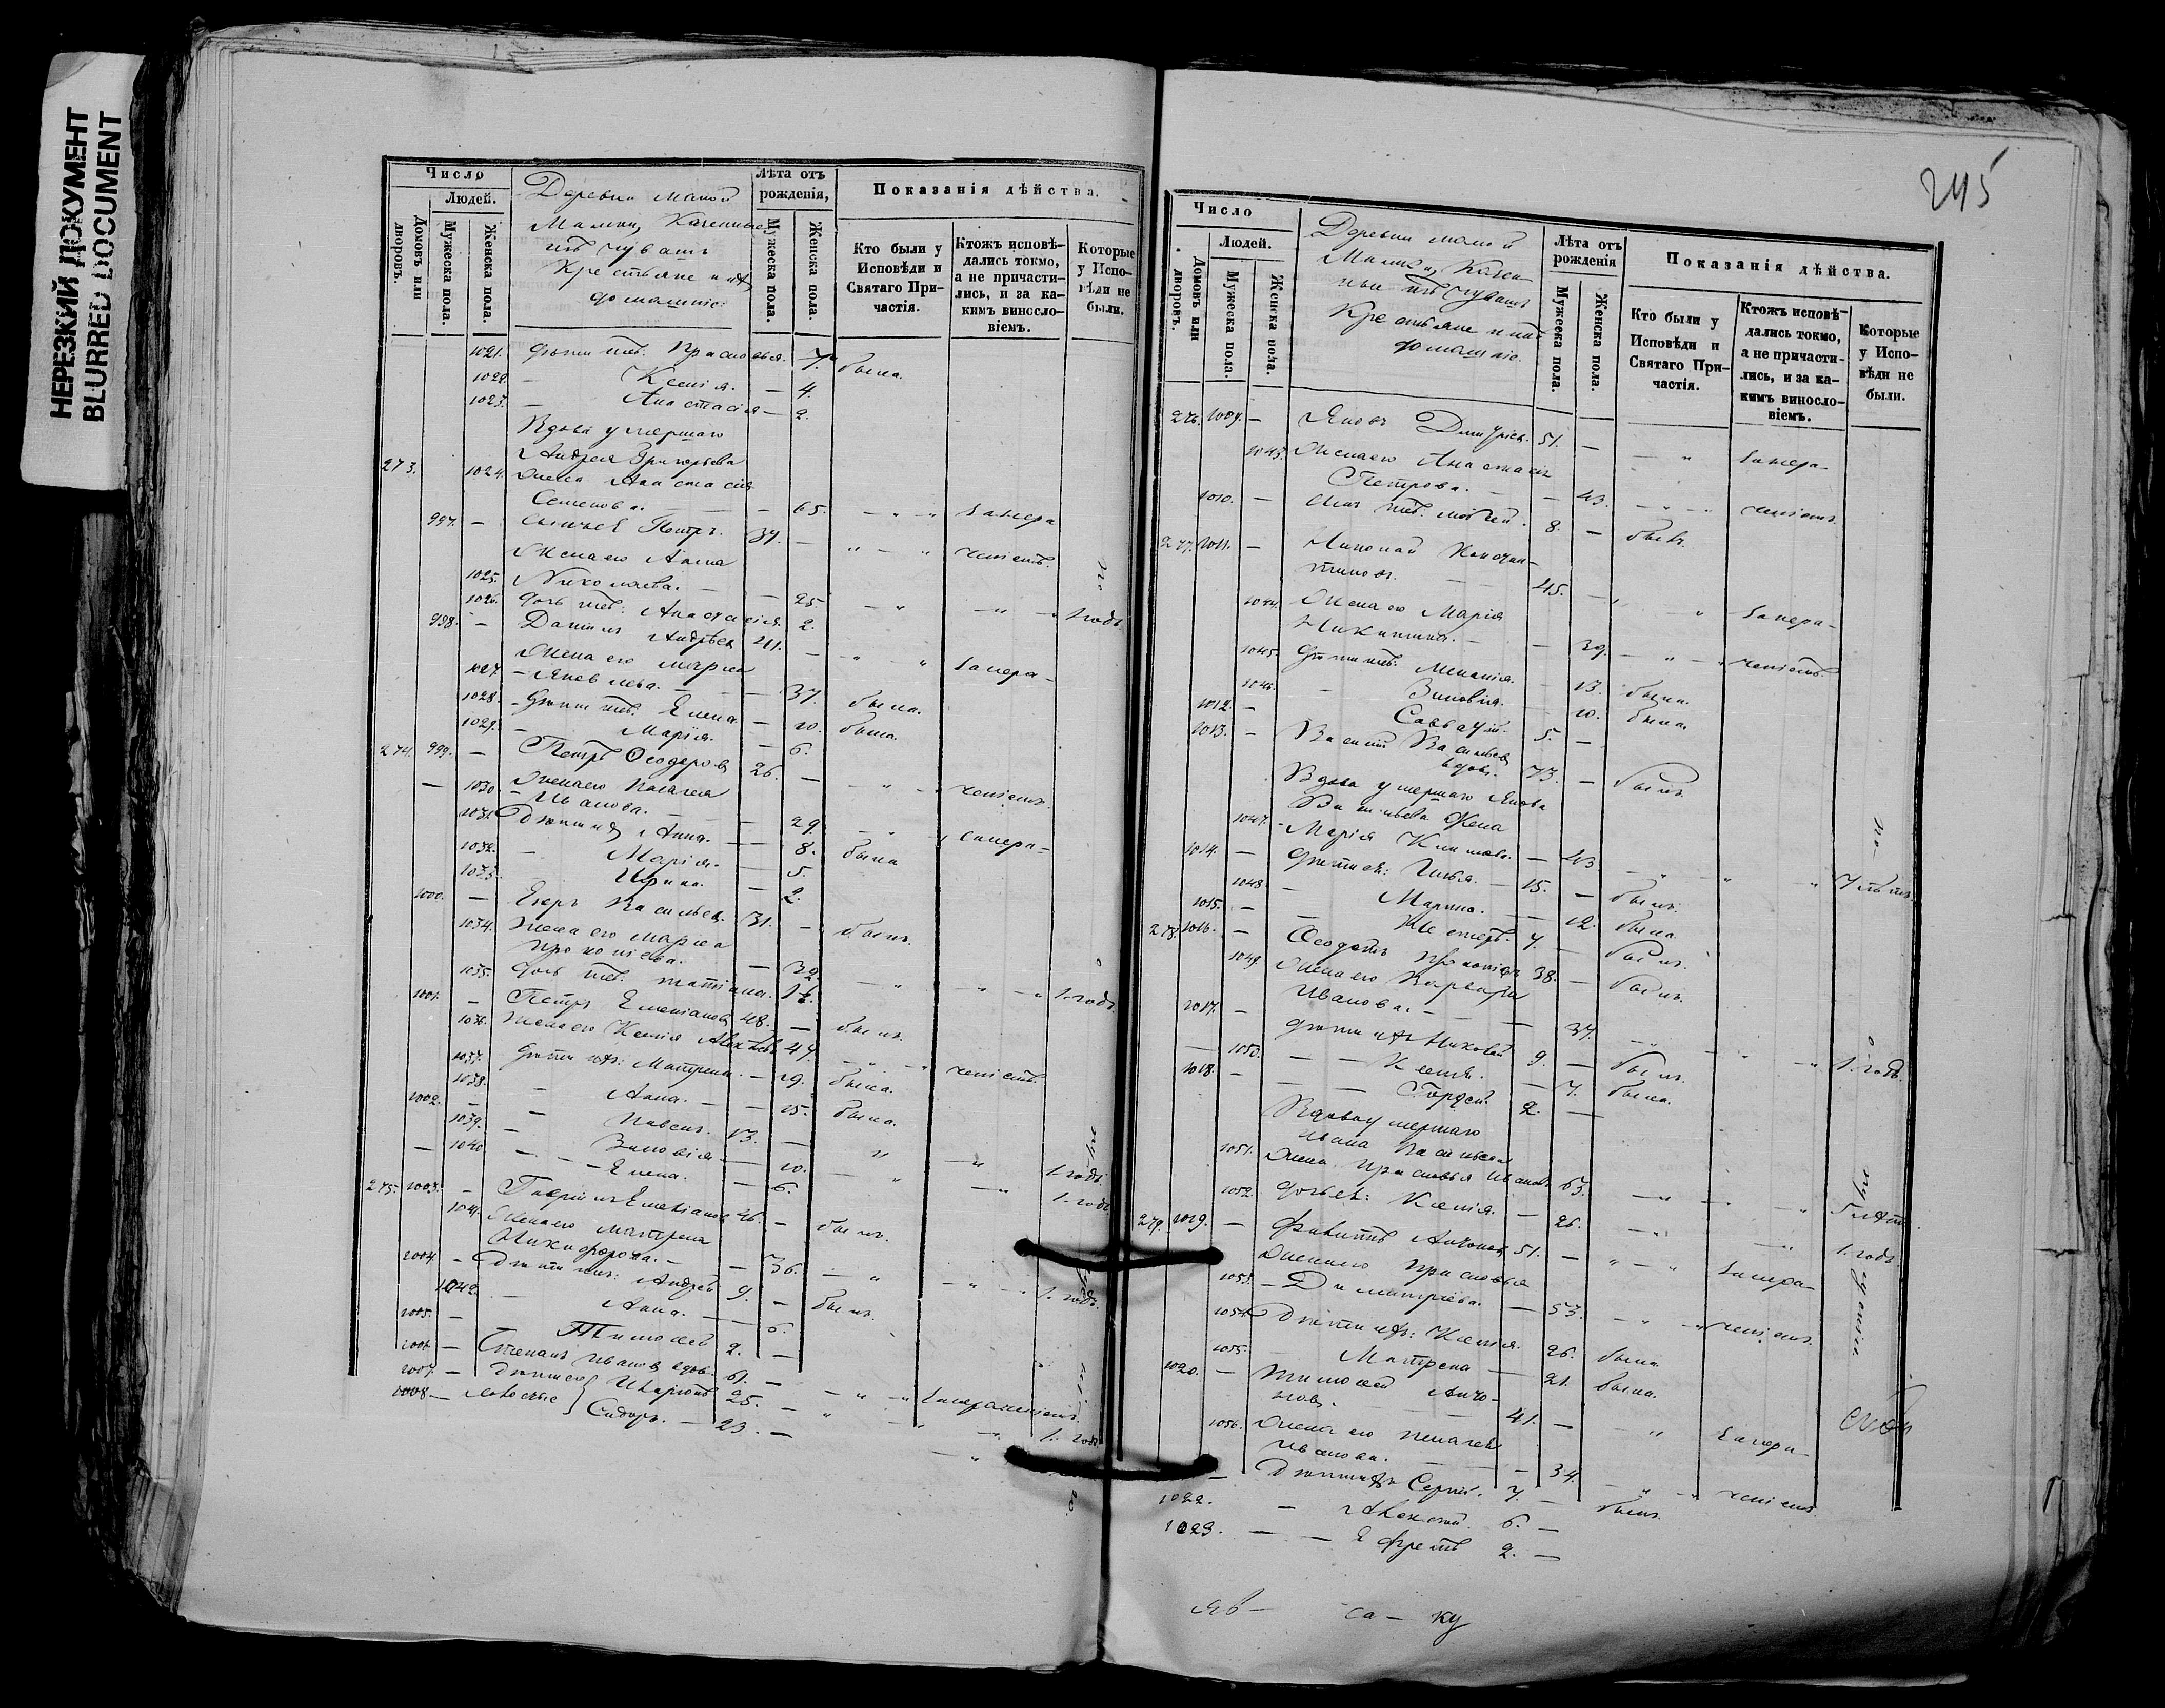 НЕРЕЗКИЙ ДОКУМЕНТ
BLURRED DOCUMENT
Число
Людей.
Домовъ или дворовъ.
Мужеска пола.
Женска пола.
Деревни Малой
изъ чувашъ
Крестьяне и ихъ
домашніе:
Лѣта отъ рожденія,
Мужеска пола.
Женска пола.
Показанія дѣйства.
Кто были у Исповѣди и Святаго Причастія.
Ктожъ исповѣдались токмо, а не причастились, и за какимъ винословіемъ.
Которые у Исповѣди не были.
1021. Дѣти ихъ: Прасковья. 7. была.
1022. — Ксенія. — 4.
1023. — Анастасія — 2.
Вдова умершаго
Андрея Григорьева
273. 1024. жена Анастасія
Семенова. — 65. — „ — за нера-
997. — Сынъ ея Петръ. 37. — „ — „ченіемъ.
Жена его Анна
1025. Николаева. — 25. — „ — „ — „ 1 годъ
1026. дочь ихъ: Анастасія. 2.
998. — Данилъ Андреевъ 41. — „ „ за нера-
Жена его Марѳа
1027. — Яковлева. — 37. была.
1028. — Дѣти ихъ: Елена — 10. была.
1029. — Марія. — 6.
274. 999. — Петръ Ѳеодоровъ 26. — „ — „ченіемъ.
1030. Жена его Пелагея
— Иванова. — 29. — „ за нера-
1031. Дѣти ихъ Анна. — 8. была
1032. — Марія. — 5.
1033. — Ирина. — 2.
1000. — Егоръ Васильевъ. 31. — былъ.
1034. Жена его Марѳа
Прокопіева. — 32 — „ — „ — „ 1. годъ.
1035. дочь ихъ: Татіана.
1001. — Петръ Емеліановъ 48. — былъ.
1036. Жена его Ксенія 47. — „ — „ченіемъ.
1037. Дѣти ихъ: Матрена. — 19. была.
1038. — Анна. — 15. была.
1002. — Павелъ. 13. — „ — „ 1. годъ.
1039. — Зиновія — 10. — „ — „ 1. годъ
1040 — Елена. — 6.
275. 1003. — Гавріилъ Емеліановъ 46. — былъ.
1041. Жена его Матрена
Никифорова. — 36. — „ — „ 1. годъ.
1004. — Дѣти ихъ: Андрей 9. — былъ.
1042. — Анна. — 6.
1005. — Тимоѳей 2. —
1006. — Степанъ Ивановъ вдов. 61. — „ — за нераченіемъ.
1007. — Дѣти его Иларіонъ 25. — „ — „ 1. годъ
1008. — Сидоръ. — 23. —
245
Число
Людей.
Домовъ или дворовъ.
Мужеска пола.
Женска пола.
Деревни Малой
изъ чувашъ
Крестьяне и ихъ
домашніе.
Лѣта отъ рожденія
Мужеска пола.
Женска пола.
Показанія дѣйства.
Кто были у Исповѣди и Святаго Причастія.
Ктожъ исповѣдались токмо, а не причастились, и за какимъ винословіемъ.
Которые у Исповѣди не были.
276. 1009. — Яковъ Дмитріев. 51. — „ за нера-
1043. Жена его Анастасія
Петрова. — 43. — „ — „ченіемъ.
1010. — Сынъ ихъ: Матвей. 8. — былъ.
277. 1011. — Николай Констан-
тиновъ. — 45. — „ за нера-
1044. Жена его Марія
Никитина. — 39. — „ — „ченіемъ.
1045. Дѣти ихъ: Меланія. — 13. была.
1046. — Зиновія. — 10. была.
1012. — Савватій. 5. —
1013. — Василій Васильевъ
вдовъ. 73. — былъ.
Вдова умершаго Якова
Васильева жена
1047. — Марія — 43 — „ — „ 7 лѣтъ
1014. — Дѣти ея: Илья. — 15. — былъ.
1048. — Марина. — 12. была
1015. — Несторъ. 7. — былъ.
278. 1016. — Ѳеодотъ Прокопіевъ 38. — былъ.
1049. Жена его Варвара
Иванова. — 37. — „ — „ 1. годъ.
1017. — Дѣти ихъ Николай 9. — былъ.
1050. — Ксенія. — 7. была.
1018. — Гордей. 2. —
Вдова умершаго
Ивана Васильева
1051. жена Прасковья Иванова 63. — „ — „ 5 лѣтъ.
1052. дочь ея: Ксенія. — 26. — „ — 1. годъ
279. 1019. — Филиппъ Антоновъ 51. — „ — „ за нера-
Жена его Прасковья
1053. — Димитріева. — 53. — „ — „ченіемъ.
1054. Дѣти ихъ: Ксенія. 26. была.
1055. Матрена — 21. была.
1020. — Тимоѳей Анто-
новъ. — 41. — „ за нера-
1056. Жена его Пелагея
Иванова. — 34. — „ — „ченіемъ.
— Дѣти ихъ Сергій. 7. — былъ.
1022. — Алексѣй. 6. —
1023. — Ефремъ 2. —